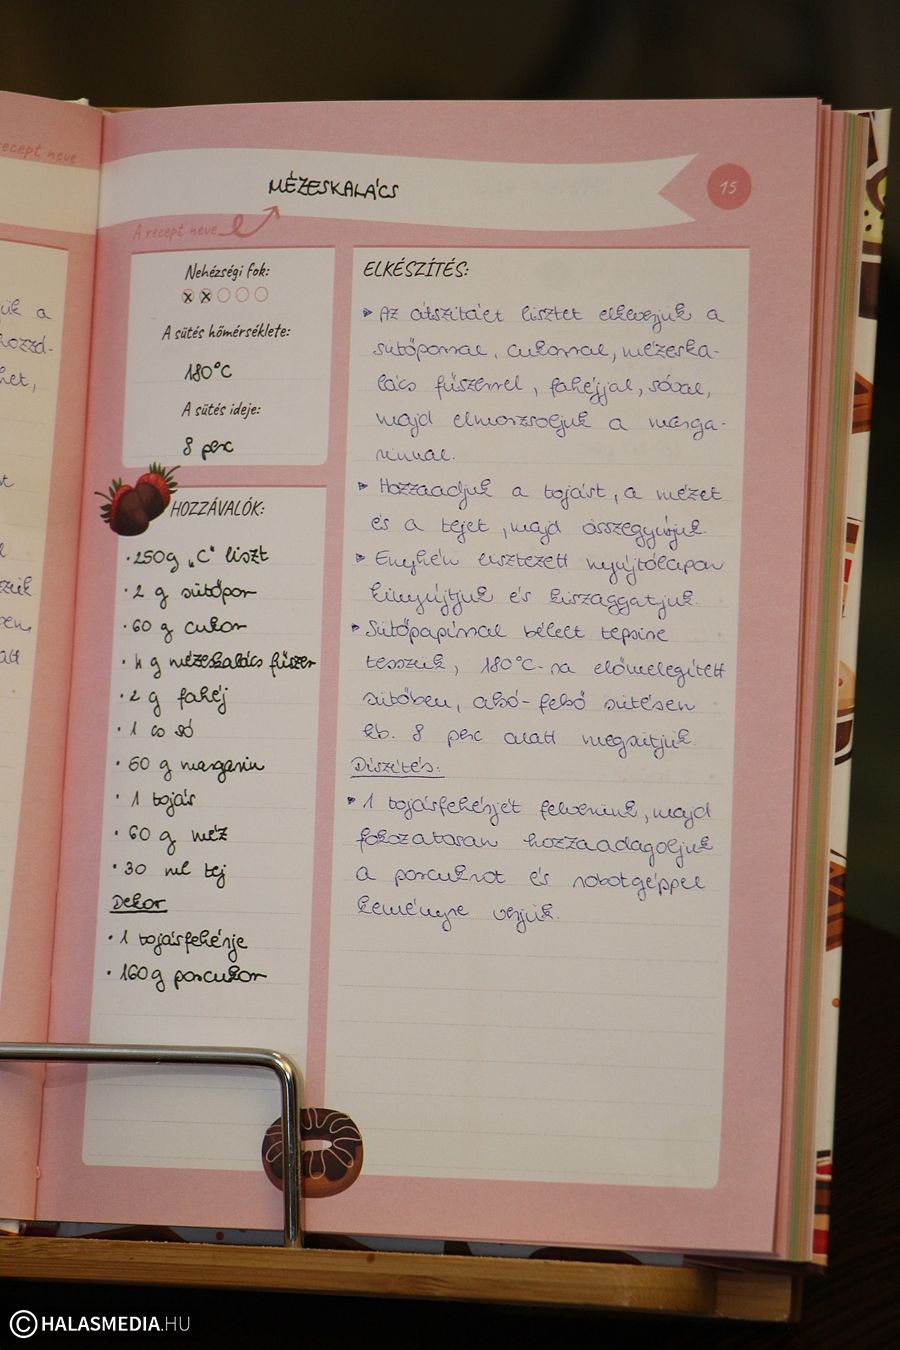 recept neve
MÉZESKALÁCS
15
A recept neve
Nehézségi fok:
x x
A sütés hőmérséklete:
180°C
A sütés ideje:
8 perc
HOZZÁVALÓK:
· 250g „C" liszt
· 2 g sütőpor
· 60 g cukor
· 4 g mézeskalács fűszer
· 2 g fahéj
· 1 cs só
· 60 g margarin
· 1 tojás
· 60 g méz
· 30 ml tej
Dekor
· 1 tojásfehérje
· 160g porcukor
ELKÉSZÍTÉS:
Az átszitált lisztet elkeverjük a
sütőporral, cukorral, mézeska-
lács fűszerrel, fahéjjal, sóval,
majd elmorzsoljuk a marga-
rinnal.
Hozzáadjuk a tojást, a mézet
és a tejet, majd összegyúrjuk.
Enyhén lisztezett nyújtólapon
kinyújtjuk és kiszaggatjuk.
Sütőpapírral bélelt tepsire
tesszük, 180°C-ra előmelegített
sütőben, alsó-felső sütésen
kb. 8 perc alatt megsütjük.
Díszítés:
1 tojásfehérjét felverünk, majd
fokozatosan hozzáadagoljuk
a porcukrot és robotgéppel
keményre verjük.
© HALASMEDIA.HU